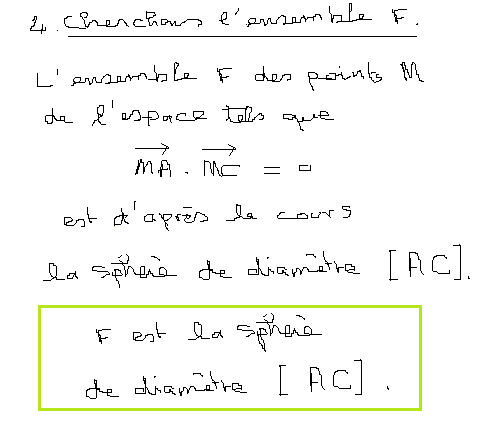 2. Cherchons l'ensemble F.
L'ensemble F des points M
de l'espace tels que
MA . MC = 0
est d'après le cours
la sphère de diamètre [AC].
F est la sphère
de diamètre [AC].